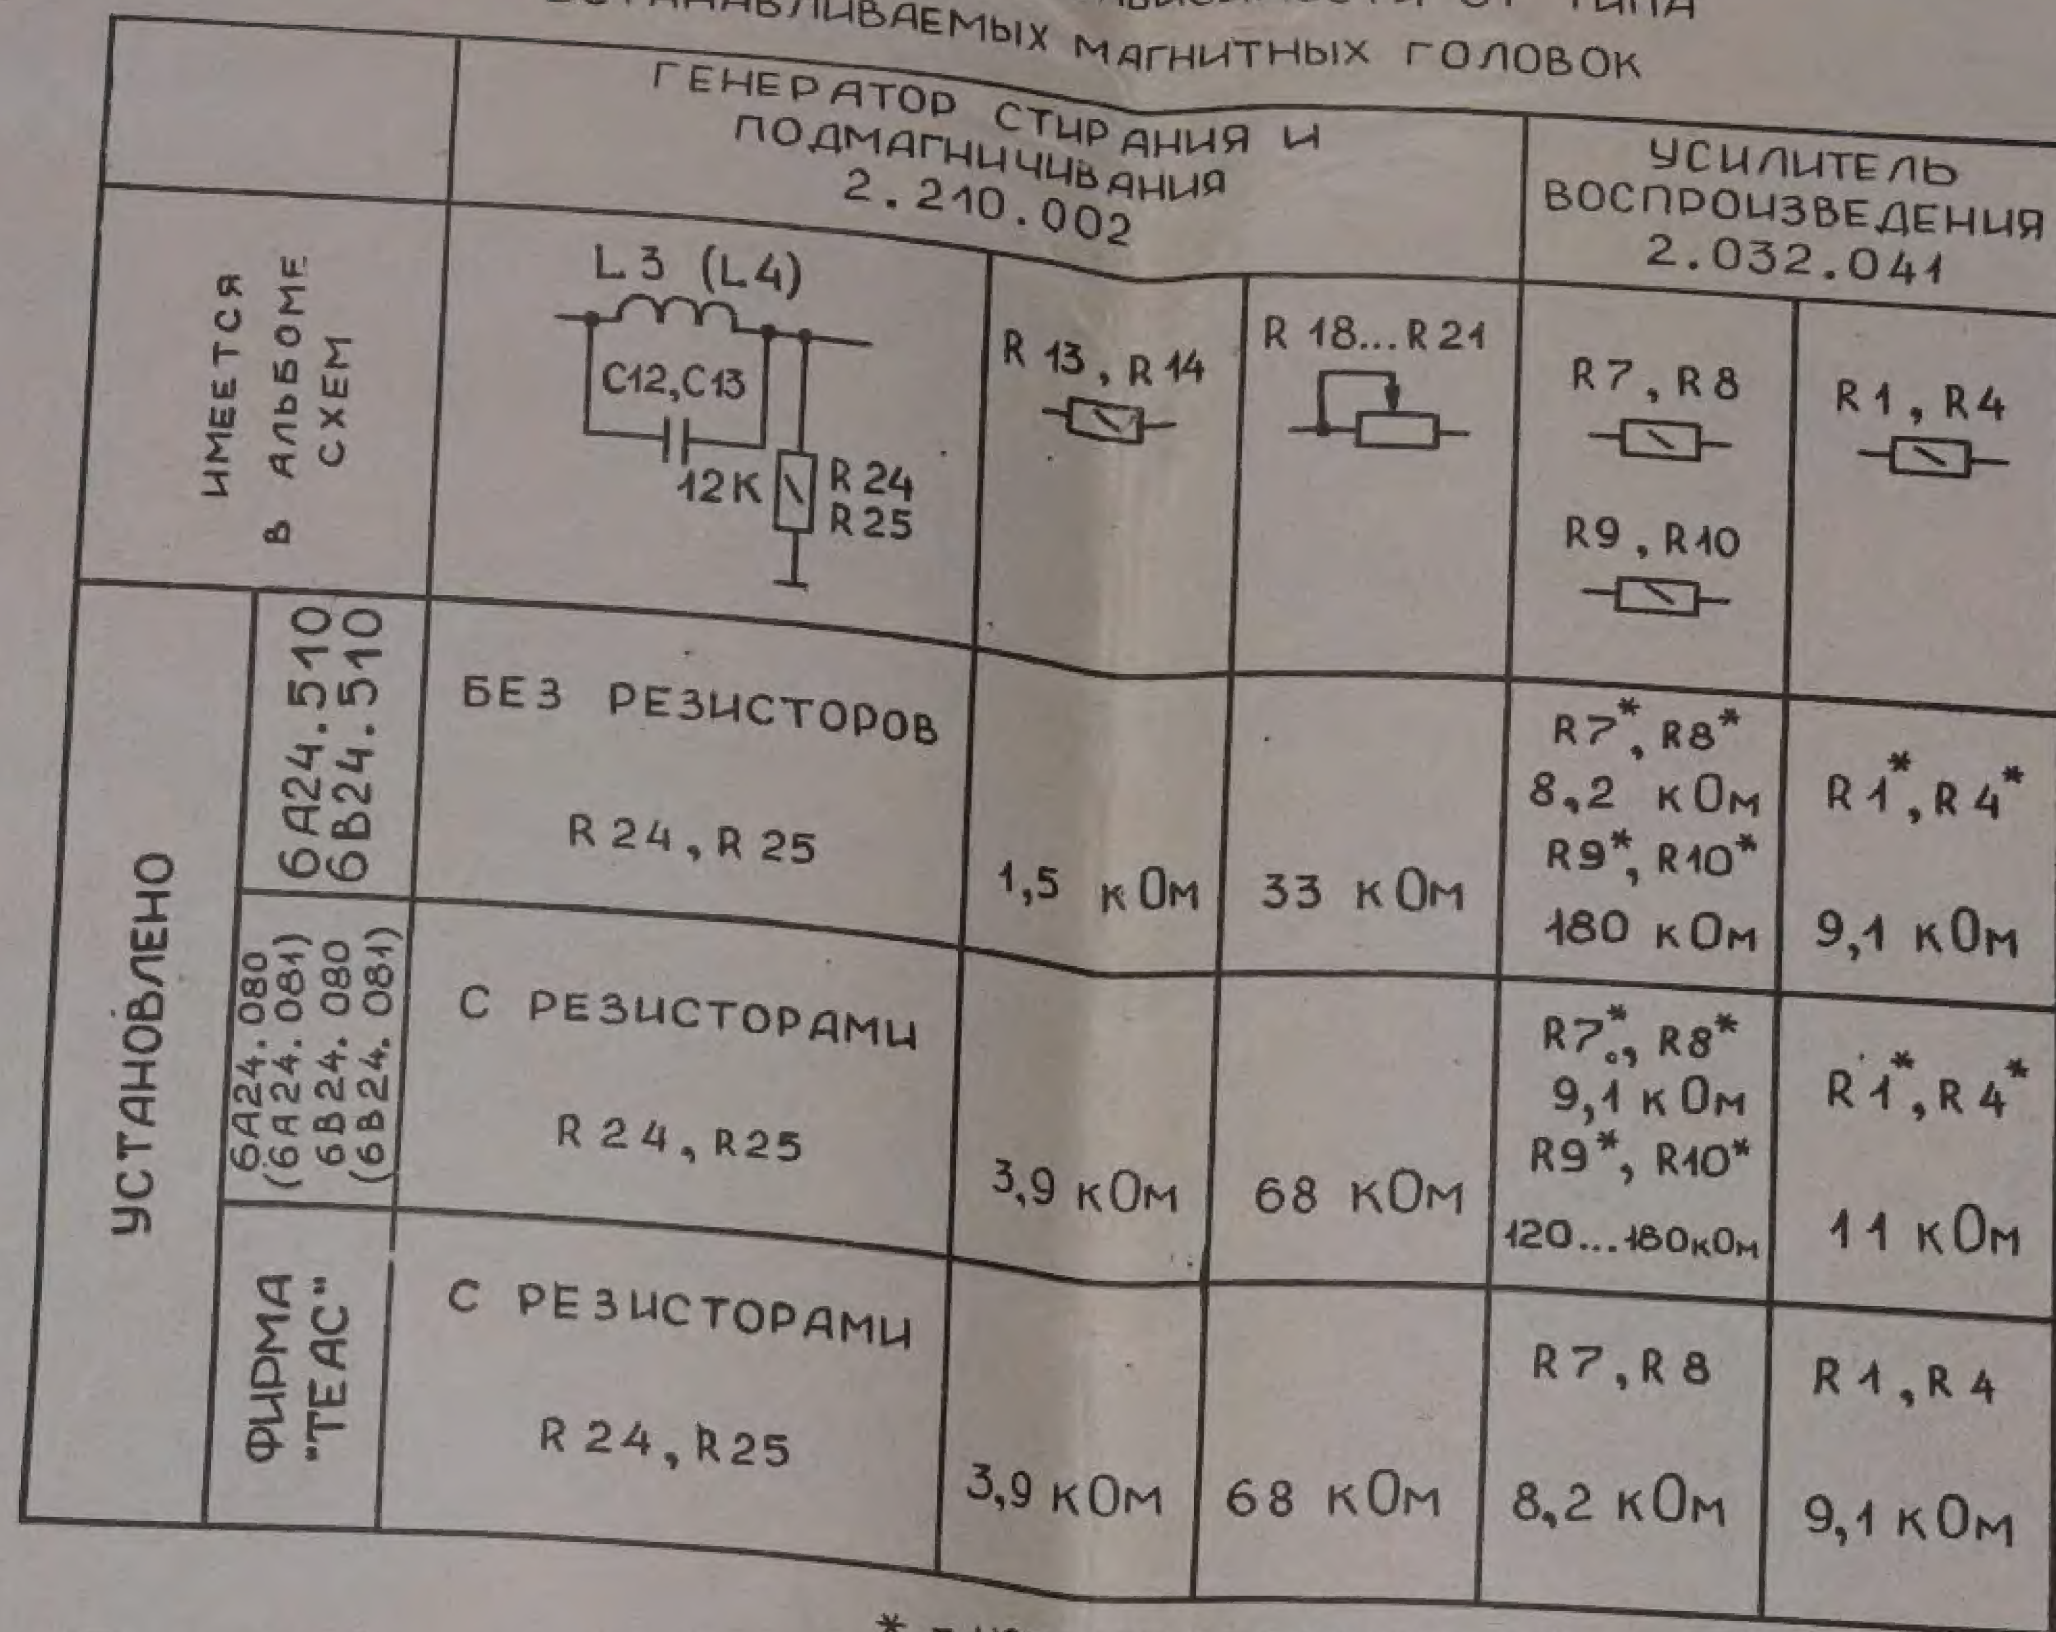 ОТ ТИПА
МАГНИТНЫХ ГОЛОВОК
ГЕНЕРАТОР СТИРАНИЯ И
ПОДМАГНИЧИВАНИЯ
2.210.002
УСИЛИТЕЛЬ
ВОСПРОИЗВЕДЕНИЯ
2.032.041
ИМЕЕТСЯ
В АЛЬБОМЕ
СХЕМ
L3 (L4)
C12,C13
12К
R24
R25
R 13, R 14
R 18...R 21
R7, R8
R9, R10
R1, R4
УСТАНОВЛЕНО
6А24.510
6В24.510
БЕЗ РЕЗИСТОРОВ
R 24, R 25
1,5 кОм
33 кОм
R7*, R8*
8,2 кОм
R9*, R10*
180 кОм
R1*, R4*
9,1 кОм
6А24.080
(6А24.081)
6В24.080
(6В24.081)
С РЕЗИСТОРАМИ
R 24, R25
3,9 кОм
68 кОм
R7*, R8*
9,1 кОм
R9*, R10*
120...180кОм
R1*, R4*
11 кОм
ФИРМА
"TEAC"
С РЕЗИСТОРАМИ
R 24, R25
3,9 кОм
68 кОм
R7, R8
8,2 кОм
R1, R4
9,1 кОм
* -